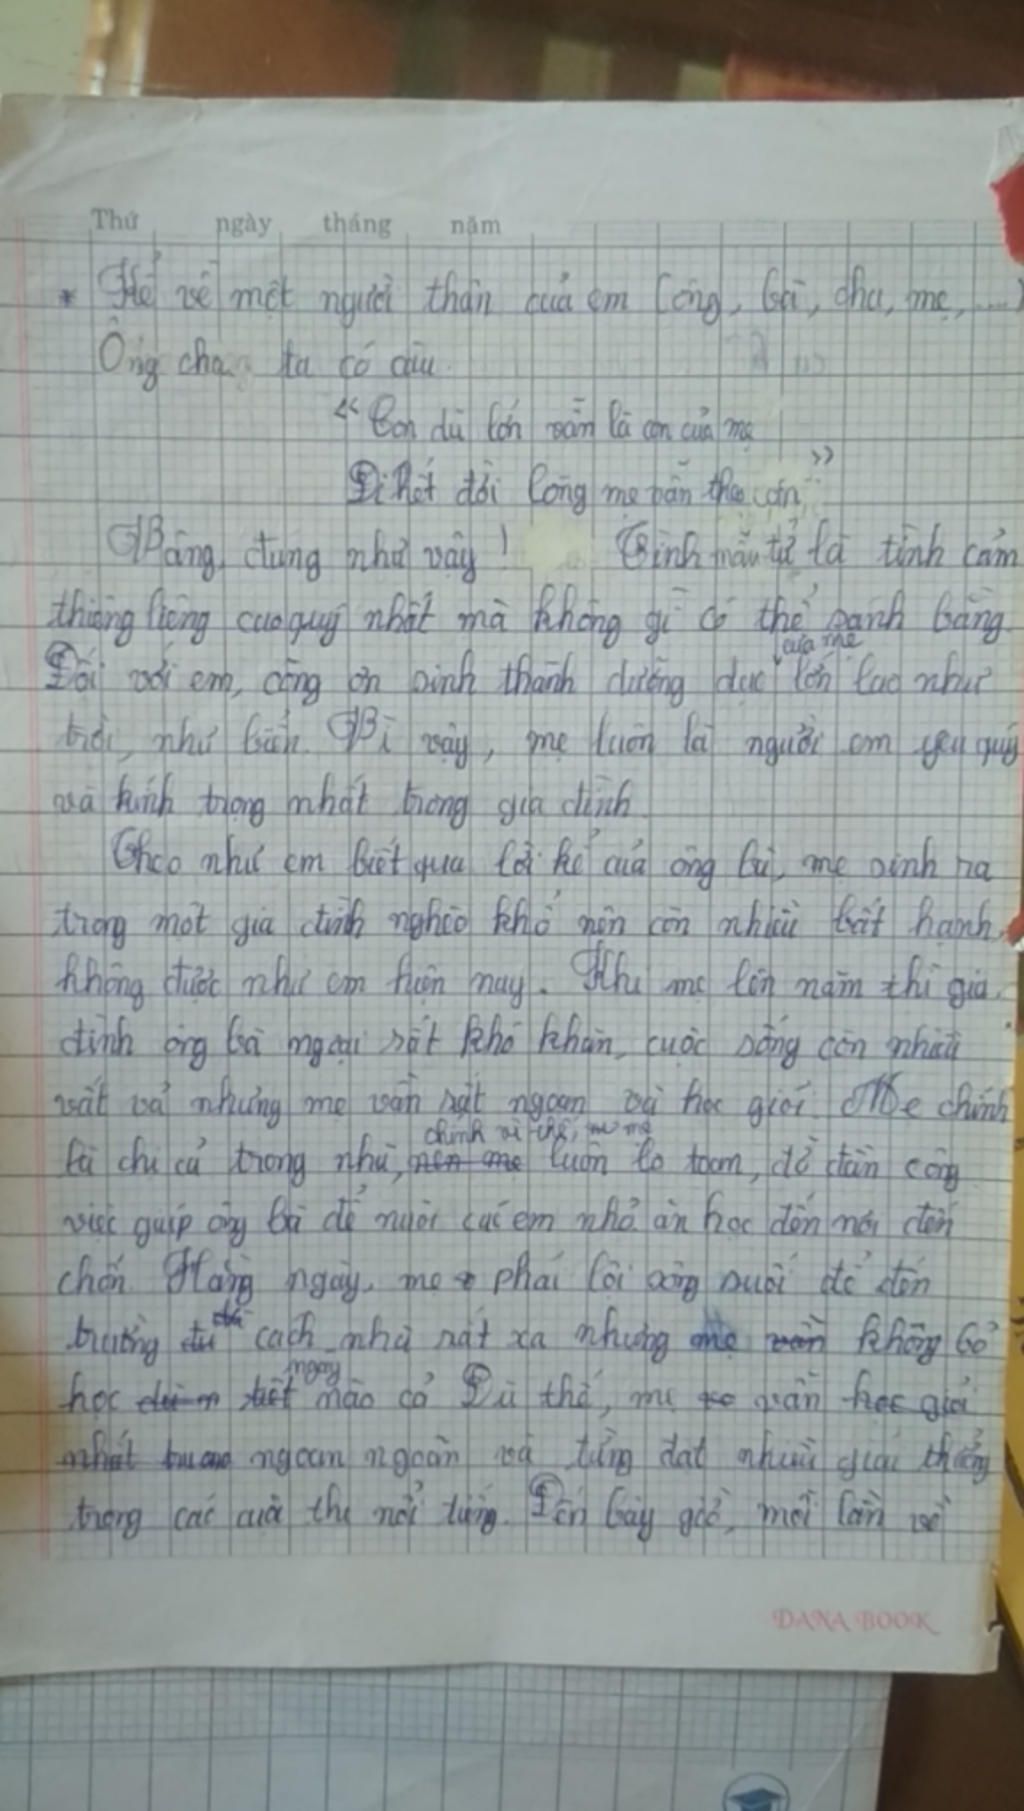 Thứ ngày tháng năm
* Kể về một người thân của em (ông, bà, cha, mẹ,....)
Ông cha ta có câu
“ Con dù lớn vẫn là con của mẹ
Đi hết đời lòng mẹ vẫn theo con ”
Vâng, đúng như vậy ! Tình mẫu tử là tình cảm
thiêng liêng cao quý nhất mà không gì có thể sánh bằng
Đối với em, công ơn sinh thành dưỡng dục của mẹ lớn lao như
trời, như biển. Vì vậy, mẹ luôn là người em yêu quý
và kính trọng nhất trong gia đình.
Theo như em biết qua lời kể của ông bà, mẹ sinh ra
trong một gia đình nghèo khó nên còn nhiều bất hạnh
không được như em hiện nay. Khi mẹ lên năm thì gia
đình ông bà ngoại rất khó khăn, cuộc sống còn nhiều
vất vả nhưng mẹ vẫn rất ngoan và học giỏi. Mẹ chính
là chị cả trong nhà, chính vì thế, mẹ nên mẹ luôn lo toan, đỡ đần công
việc giúp ông bà để nuôi các em nhỏ ăn học đến nơi đến
chốn. Hằng ngày, mẹ phải lội sông suối để đến
trường cách nhà rất xa nhưng mẹ vẫn không bỏ
học tiết ngày nào cả Dù thế, mẹ vẫn học giỏi
nhất ngoan ngoãn và từng đạt nhiều giải thưởng
trong các cuộc thi nổi tiếng. Đến bây giờ, mỗi lần về
DANA BOOK